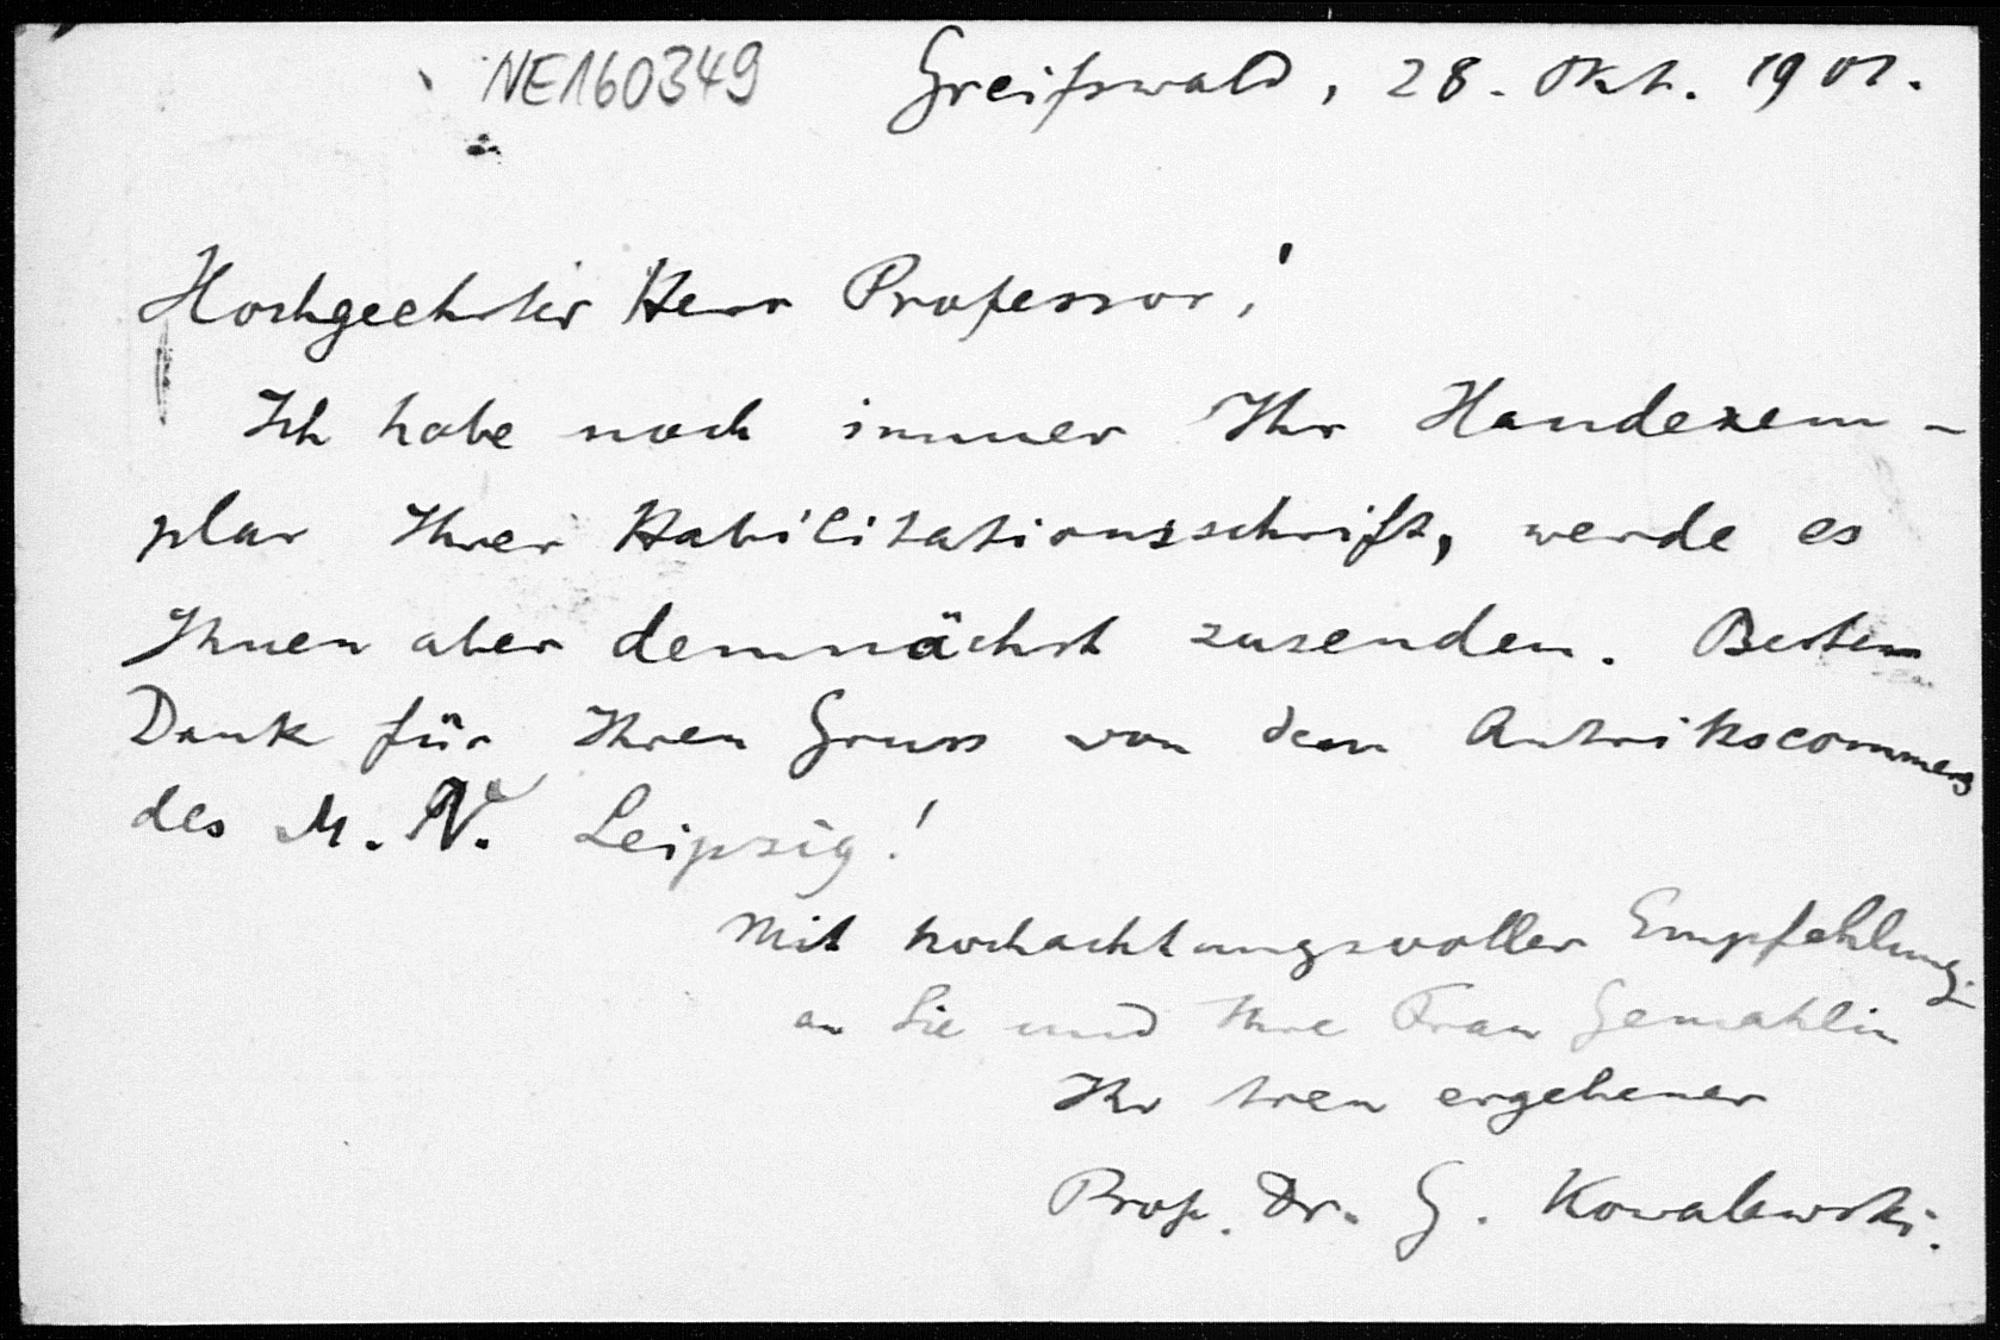 NE160349 Greifswald, 28. Okt. 1901.
Hochgeehrter Herr Professor!
Ich habe noch immer Ihr Handexem-
plar Ihrer Habilitationsschrift, werde es
Ihnen aber demnächst zusenden. Besten
Dank für Ihren Gruss von dem Antrittscommers
des M. V. Leipzig!
Mit hochachtungsvoller Empfehlung
an Sie und Ihre Frau Gemahlin
Ihr treu ergebener
Prof. Dr. G. Kowalewski.